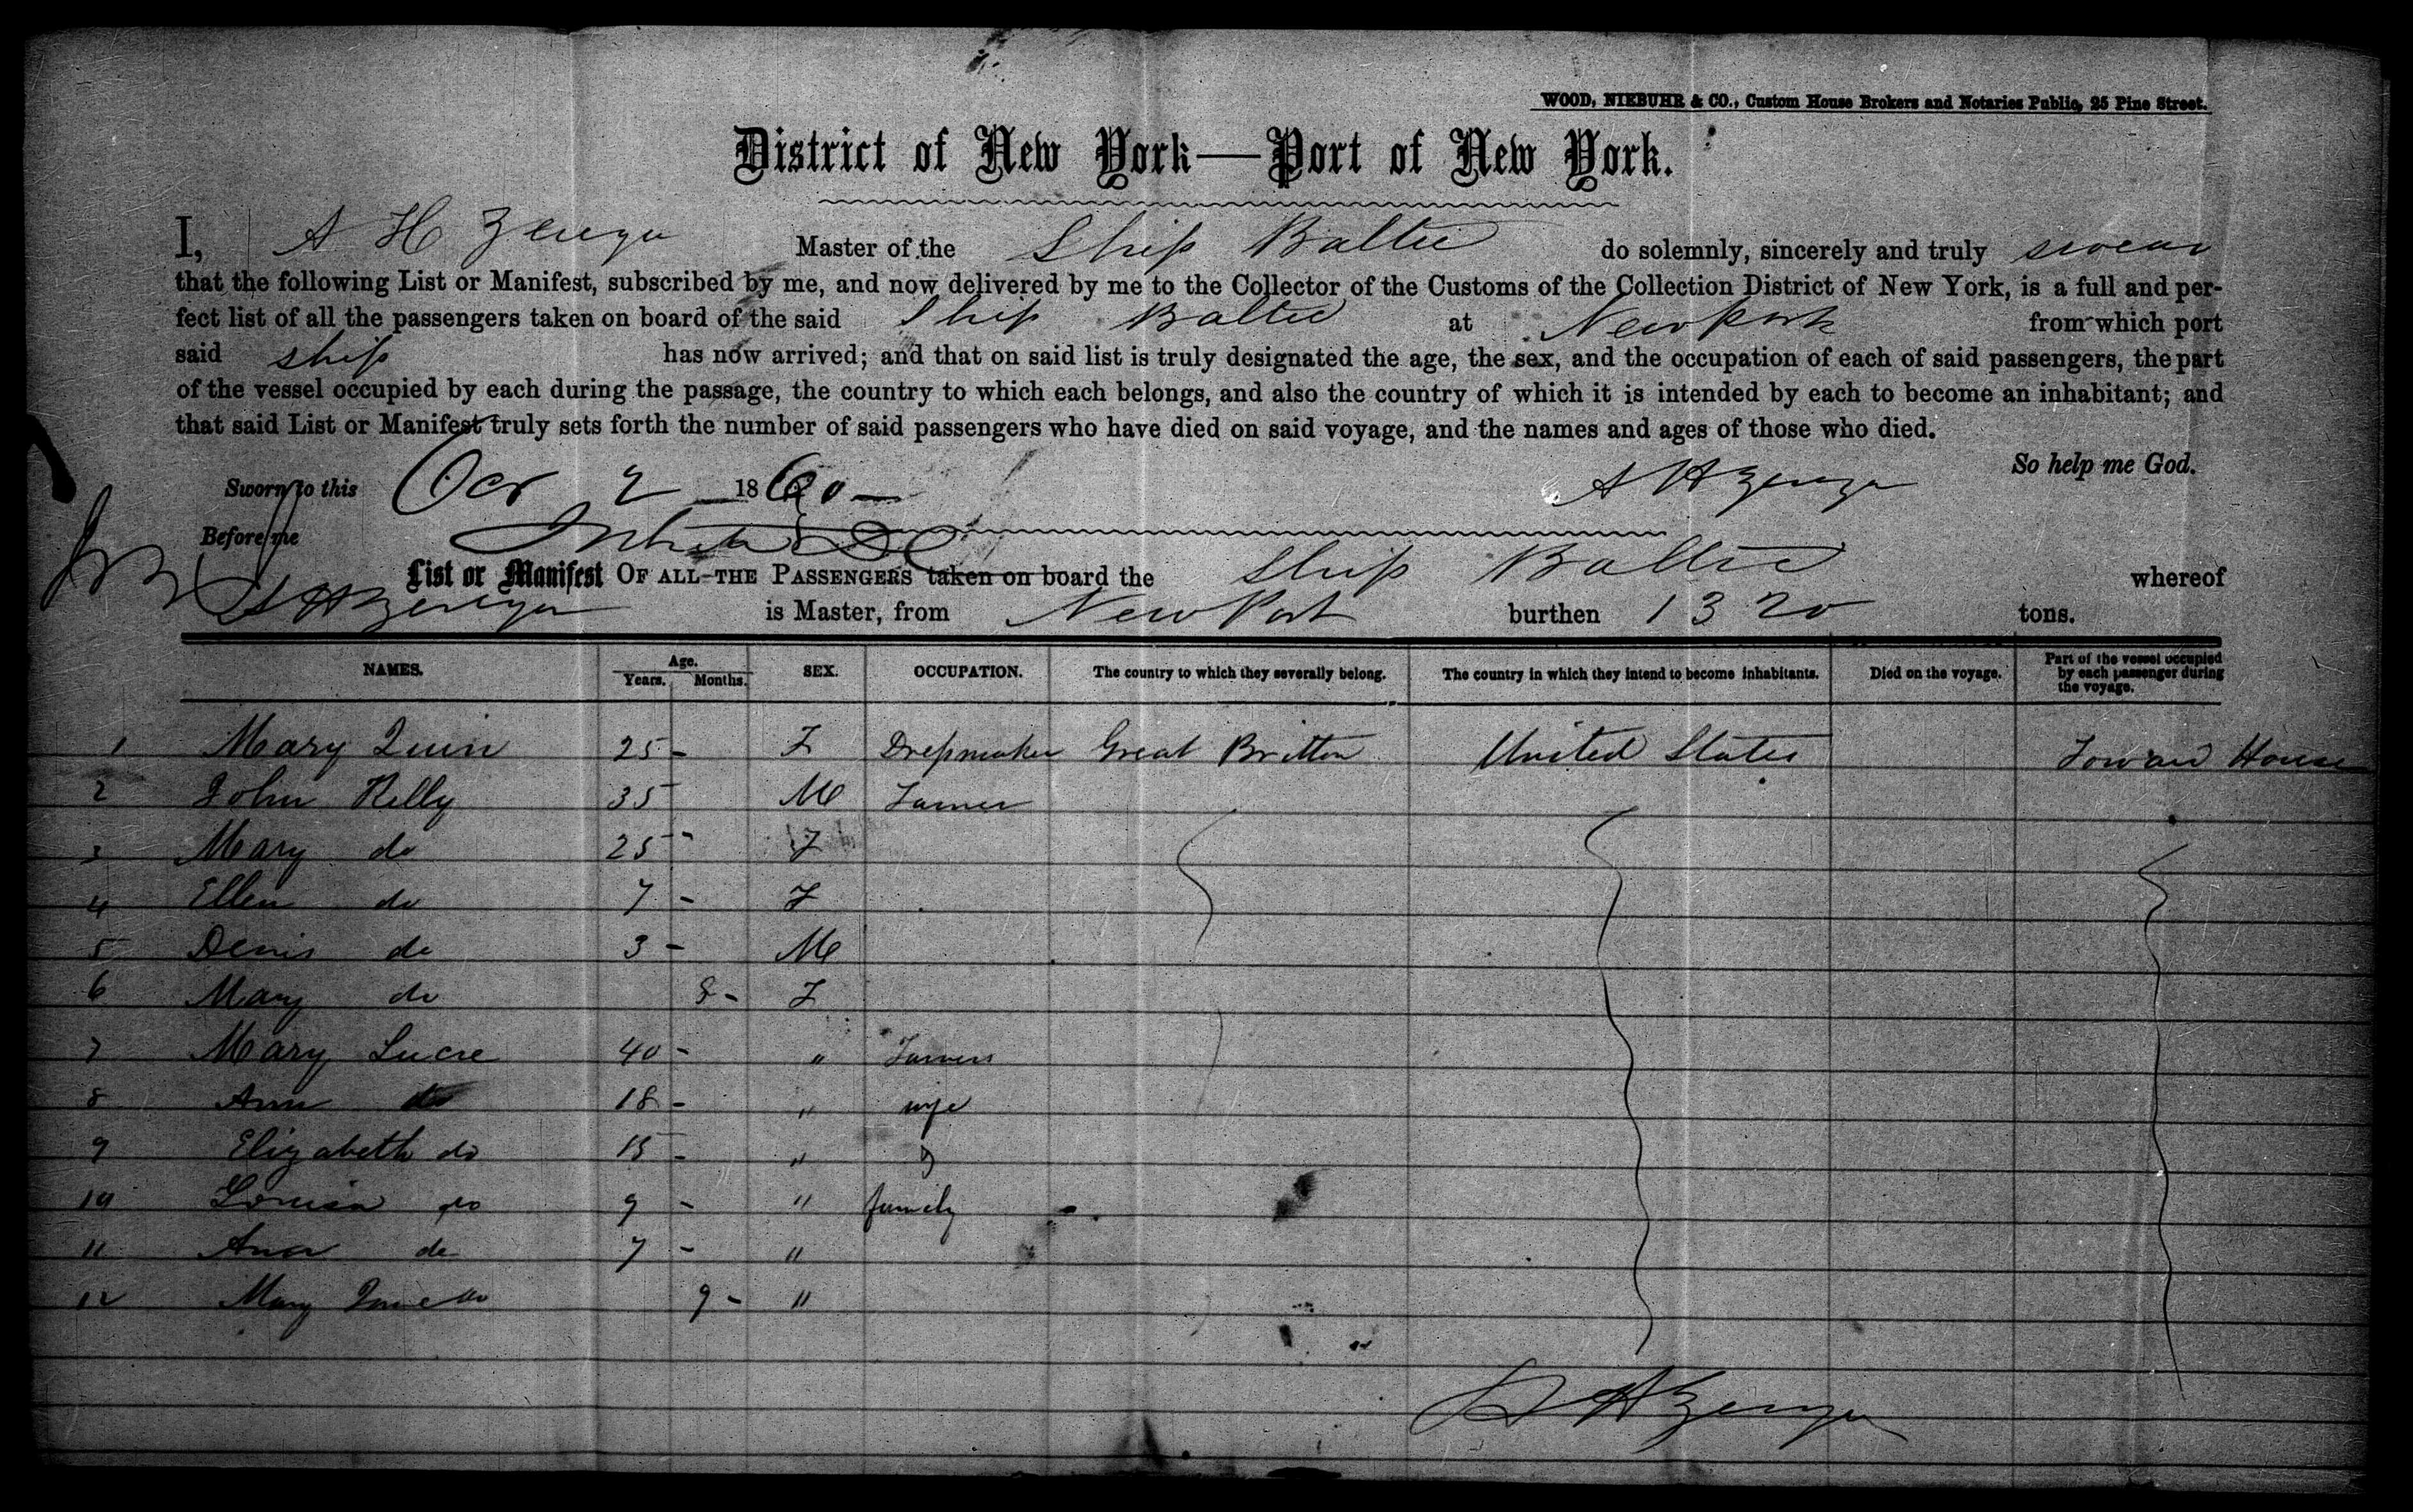 WOOD, NIEBUHR & CO., Custom House Brokers and Notaries Public, 25 Pine Street.
District of New York—Port of New York.
I, A H Zerega Master of the Ship Baltic do solemnly, sincerely and truly swear
that the following List or Manifest, subscribed by me, and now delivered by me to the Collector of the Customs of the Collection District of New York, is a full and per-
fect list of all the passengers taken on board of the said Ship Baltic at New Port from which port
said ship has now arrived; and that on said list is truly designated the age, the sex, and the occupation of each of said passengers, the part
of the vessel occupied by each during the passage, the country to which each belongs, and also the country of which it is intended by each to become an inhabitant; and
that said List or Manifest truly sets forth the number of said passengers who have died on said voyage, and the names and ages of those who died.
So help me God.
Sworn to this Oct 2 1860 A H Zerega
Before me
List or Manifest OF ALL THE PASSENGERS taken on board the Ship Baltic whereof
A H Zerega is Master, from New Port burthen 1320 tons.
NAMES. Age. Years. Months. SEX. OCCUPATION. The country to which they severally belong. The country in which they intend to become inhabitants. Died on the voyage. Part of the vessel occupied by each passenger during the voyage.
1 Mary Quin 25 - F Dressmaker Great Britton United States Forward House
2 John Kelly 35 M Farmer
3 Mary do 25 - F
4 Ellen do 7 - F
5 Denis do 3 - M
6 Mary do 8 - F
7 Mary Lucre 40 - " Farmers
8 Ann do 18 - " wife
9 Elizabeth do 15 - " &
10 Louisa do 9 - " family
11 Ana do 7 - "
12 Mary Jane do 9 - "
A H Zerega